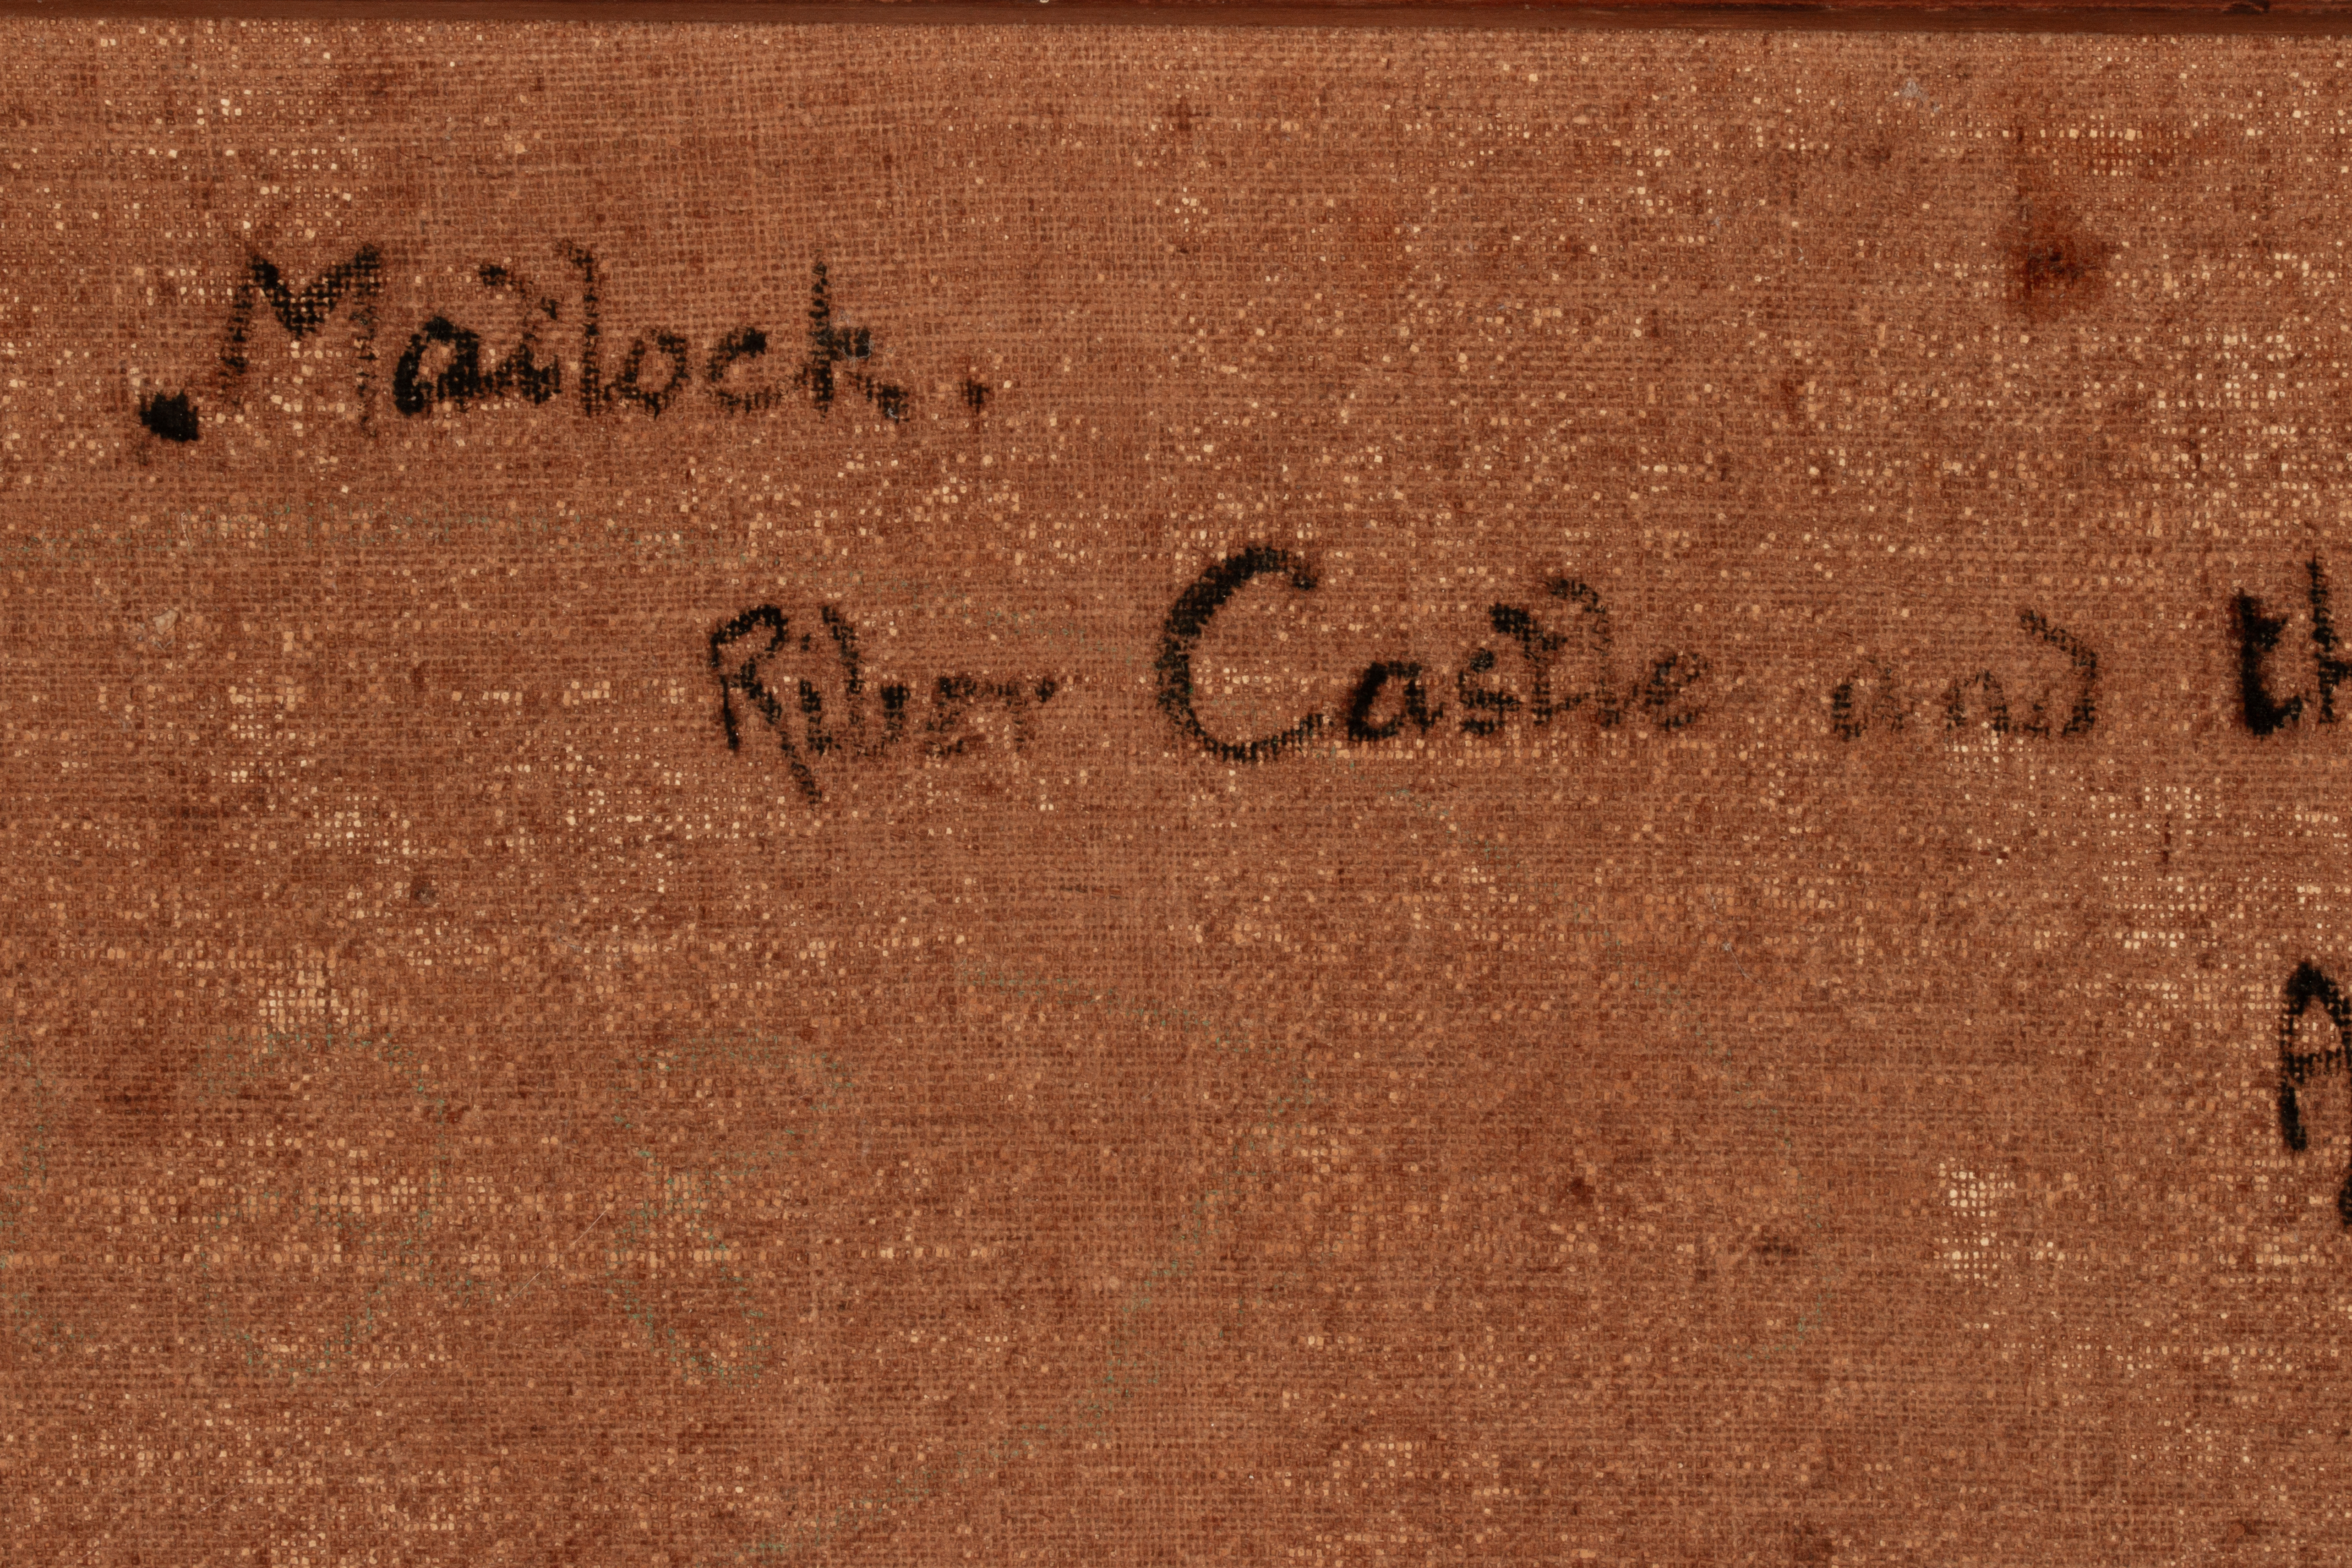 Matlock.
River Castle and th
A